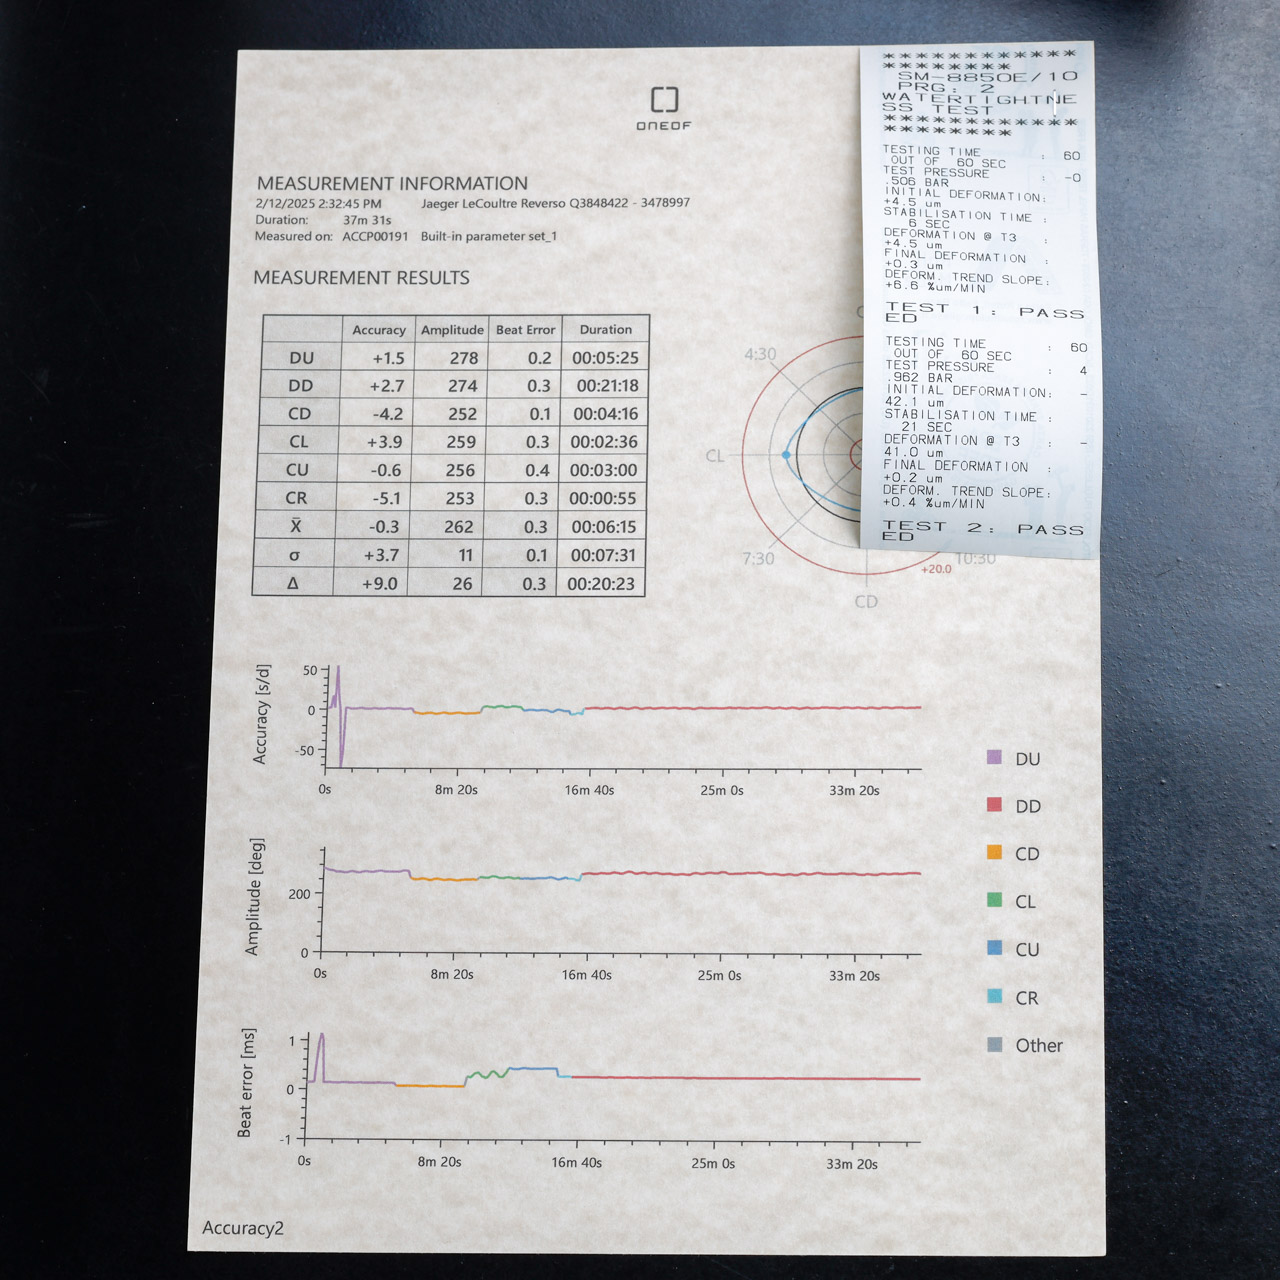 ONEOF
MEASUREMENT INFORMATION
2/12/2025 2:32:45 PM Jaeger LeCoultre Reverso Q3848422 - 3478997
Duration: 37m 31s
Measured on: ACCP00191 Built-in parameter set_1
MEASUREMENT RESULTS
Accuracy Amplitude Beat Error Duration
DU +1.5 278 0.2 00:05:25
DD +2.7 274 0.3 00:21:18
CD -4.2 252 0.1 00:04:16
CL +3.9 259 0.3 00:02:36
CU -0.6 256 0.4 00:03:00
CR -5.1 253 0.3 00:00:55
X̄ -0.3 262 0.3 00:06:15
σ +3.7 11 0.1 00:07:31
Δ +9.0 26 0.3 00:20:23
4:30
CL
7:30
CD
10:30
+20.0
*******************
SM-8850E/10
PRG: 2
WATERTIGHTNE
SS TEST
*******************
TESTING TIME : 60
OUT OF 60 SEC
TEST PRESSURE : -0
.506 BAR
INITIAL DEFORMATION:
+4.5 um
STABILISATION TIME :
6 SEC
DEFORMATION @ T3 :
+4.5 um
FINAL DEFORMATION :
+0.3 um
DEFORM. TREND SLOPE:
+6.6 %um/MIN
TEST 1: PASS
ED
TESTING TIME : 60
OUT OF 60 SEC
TEST PRESSURE : 4
.962 BAR
INITIAL DEFORMATION: -
42.1 um
STABILISATION TIME :
21 SEC
DEFORMATION @ T3 : -
41.0 um
FINAL DEFORMATION :
+0.2 um
DEFORM. TREND SLOPE:
+0.4 %um/MIN
TEST 2: PASS
ED
Accuracy [s/d]
50
0
-50
0s 8m 20s 16m 40s 25m 0s 33m 20s
Amplitude [deg]
200
0
0s 8m 20s 16m 40s 25m 0s 33m 20s
Beat error [ms]
1
0
-1
0s 8m 20s 16m 40s 25m 0s 33m 20s
DU
DD
CD
CL
CU
CR
Other
Accuracy2